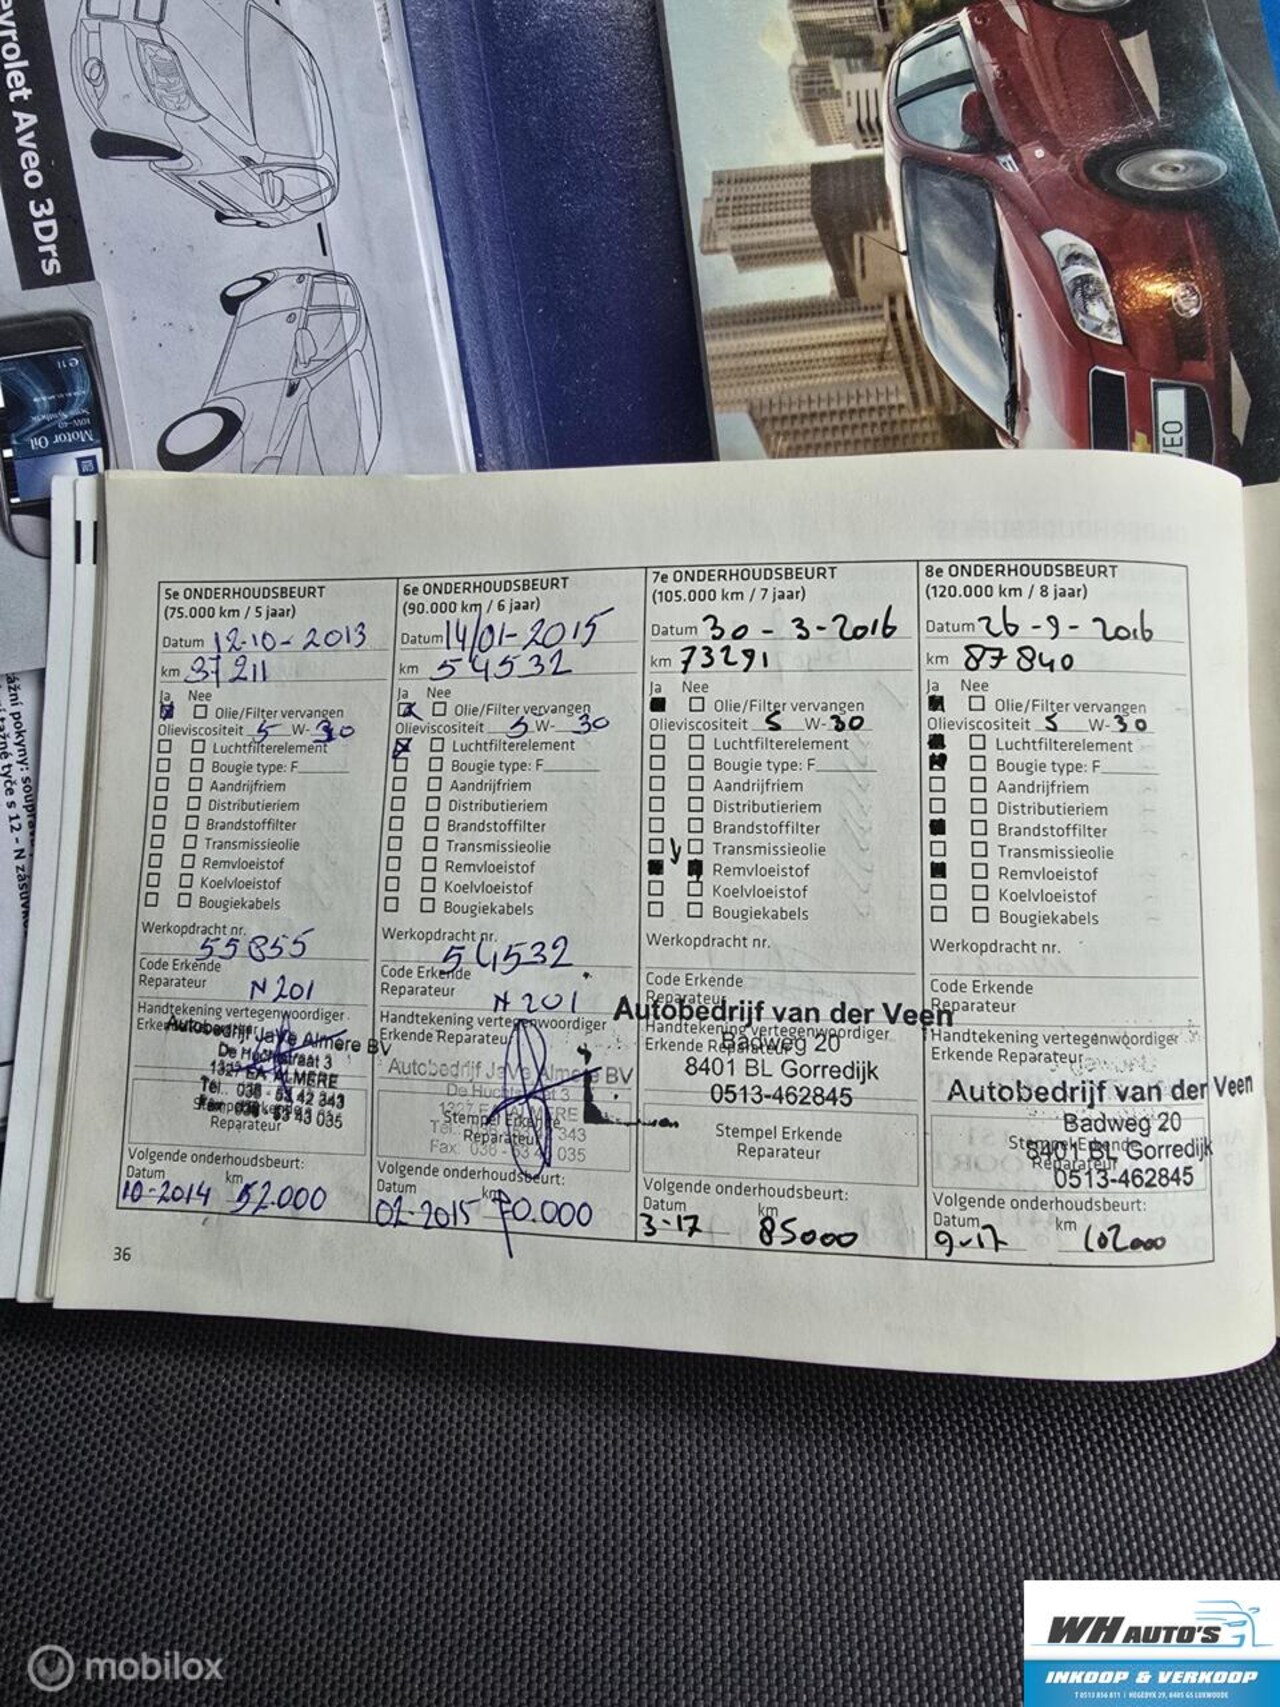 evrolet Aveo 3Drs
Motor Oil
10W-40
GM
VEO
5e ONDERHOUDSBEURT
(75.000 km / 5 jaar)
Datum 12-10-2013
km 37211
Ja Nee
Olie/Filter vervangen
Olieviscositeit 5 W-30
Luchtfilterelement
Bougie type: F
Aandrijfriem
Distributieriem
Brandstoffilter
Transmissieolie
Remvloeistof
Koelvloeistof
Bougiekabels
Werkopdracht nr.
55855
Code Erkende
Reparateur N201
Handtekening vertegenwoordiger
Autobedrijf JaVe Almere BV
1327 EA ALMERE
Tel.: 036 - 53 42 343
Fax 036 - 53 43 035
Reparateur
Volgende onderhoudsbeurt:
Datum km
10-2014 52.000
6e ONDERHOUDSBEURT
(90.000 km / 6 jaar)
Datum 14/01-2015
km 54532
Ja Nee
Olie/Filter vervangen
Olieviscositeit 5 W-30
Luchtfilterelement
Bougie type: F
Aandrijfriem
Distributieriem
Brandstoffilter
Transmissieolie
Remvloeistof
Koelvloeistof
Bougiekabels
Werkopdracht nr.
54532
Code Erkende
Reparateur N201
Handtekening vertegenwoordiger
Erkende Reparateur
Autobedrijf JaVe Almere BV
Stempel Erkende
Reparateur
Fax. 036 - 53 43 035
Volgende onderhoudsbeurt:
Datum km
02-2015 70.000
7e ONDERHOUDSBEURT
(105.000 km / 7 jaar)
Datum 30-3-2016
km 73291
Ja Nee
Olie/Filter vervangen
Olieviscositeit 5 W-30
Luchtfilterelement
Bougie type: F
Aandrijfriem
Distributieriem
Brandstoffilter
Transmissieolie
Remvloeistof
Koelvloeistof
Bougiekabels
Werkopdracht nr.
Code Erkende
Reparateur
Autobedrijf van der Veen
Handtekening vertegenwoordiger
Erkende Reparateur
Badweg 20
8401 BL Gorredijk
0513-462845
Stempel Erkende
Reparateur
Volgende onderhoudsbeurt:
Datum km
3-17 85000
8e ONDERHOUDSBEURT
(120.000 km / 8 jaar)
Datum 26-9-2016
km 87840
Ja Nee
Olie/Filter vervangen
Olieviscositeit 5 W-30
Luchtfilterelement
Bougie type: F
Aandrijfriem
Distributieriem
Brandstoffilter
Transmissieolie
Remvloeistof
Koelvloeistof
Bougiekabels
Werkopdracht nr.
Code Erkende
Reparateur
Handtekening vertegenwoordiger
Erkende Reparateur
Autobedrijf van der Veen
Badweg 20
Stempel Erkende
8401 BL Gorredijk
Reparateur
0513-462845
Volgende onderhoudsbeurt:
Datum km
9-17 102000
36
mobilox
WH AUTO'S
INKOOP & VERKOOP
T 0513 856 811 | HEGEDYK 29, 8405 GS LUXWOUDE